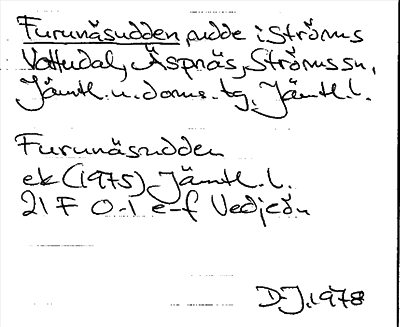 Furunäsudden, udde i Ströms
Vattudal, Äspnäs, Ströms sn,
Jämtl. n. doms. tg, Jämtl. l.
Furunäsudden
ek (1975) Jämtl. l.
21 F 0-1 e-f Vedjeön
D-J. 1978